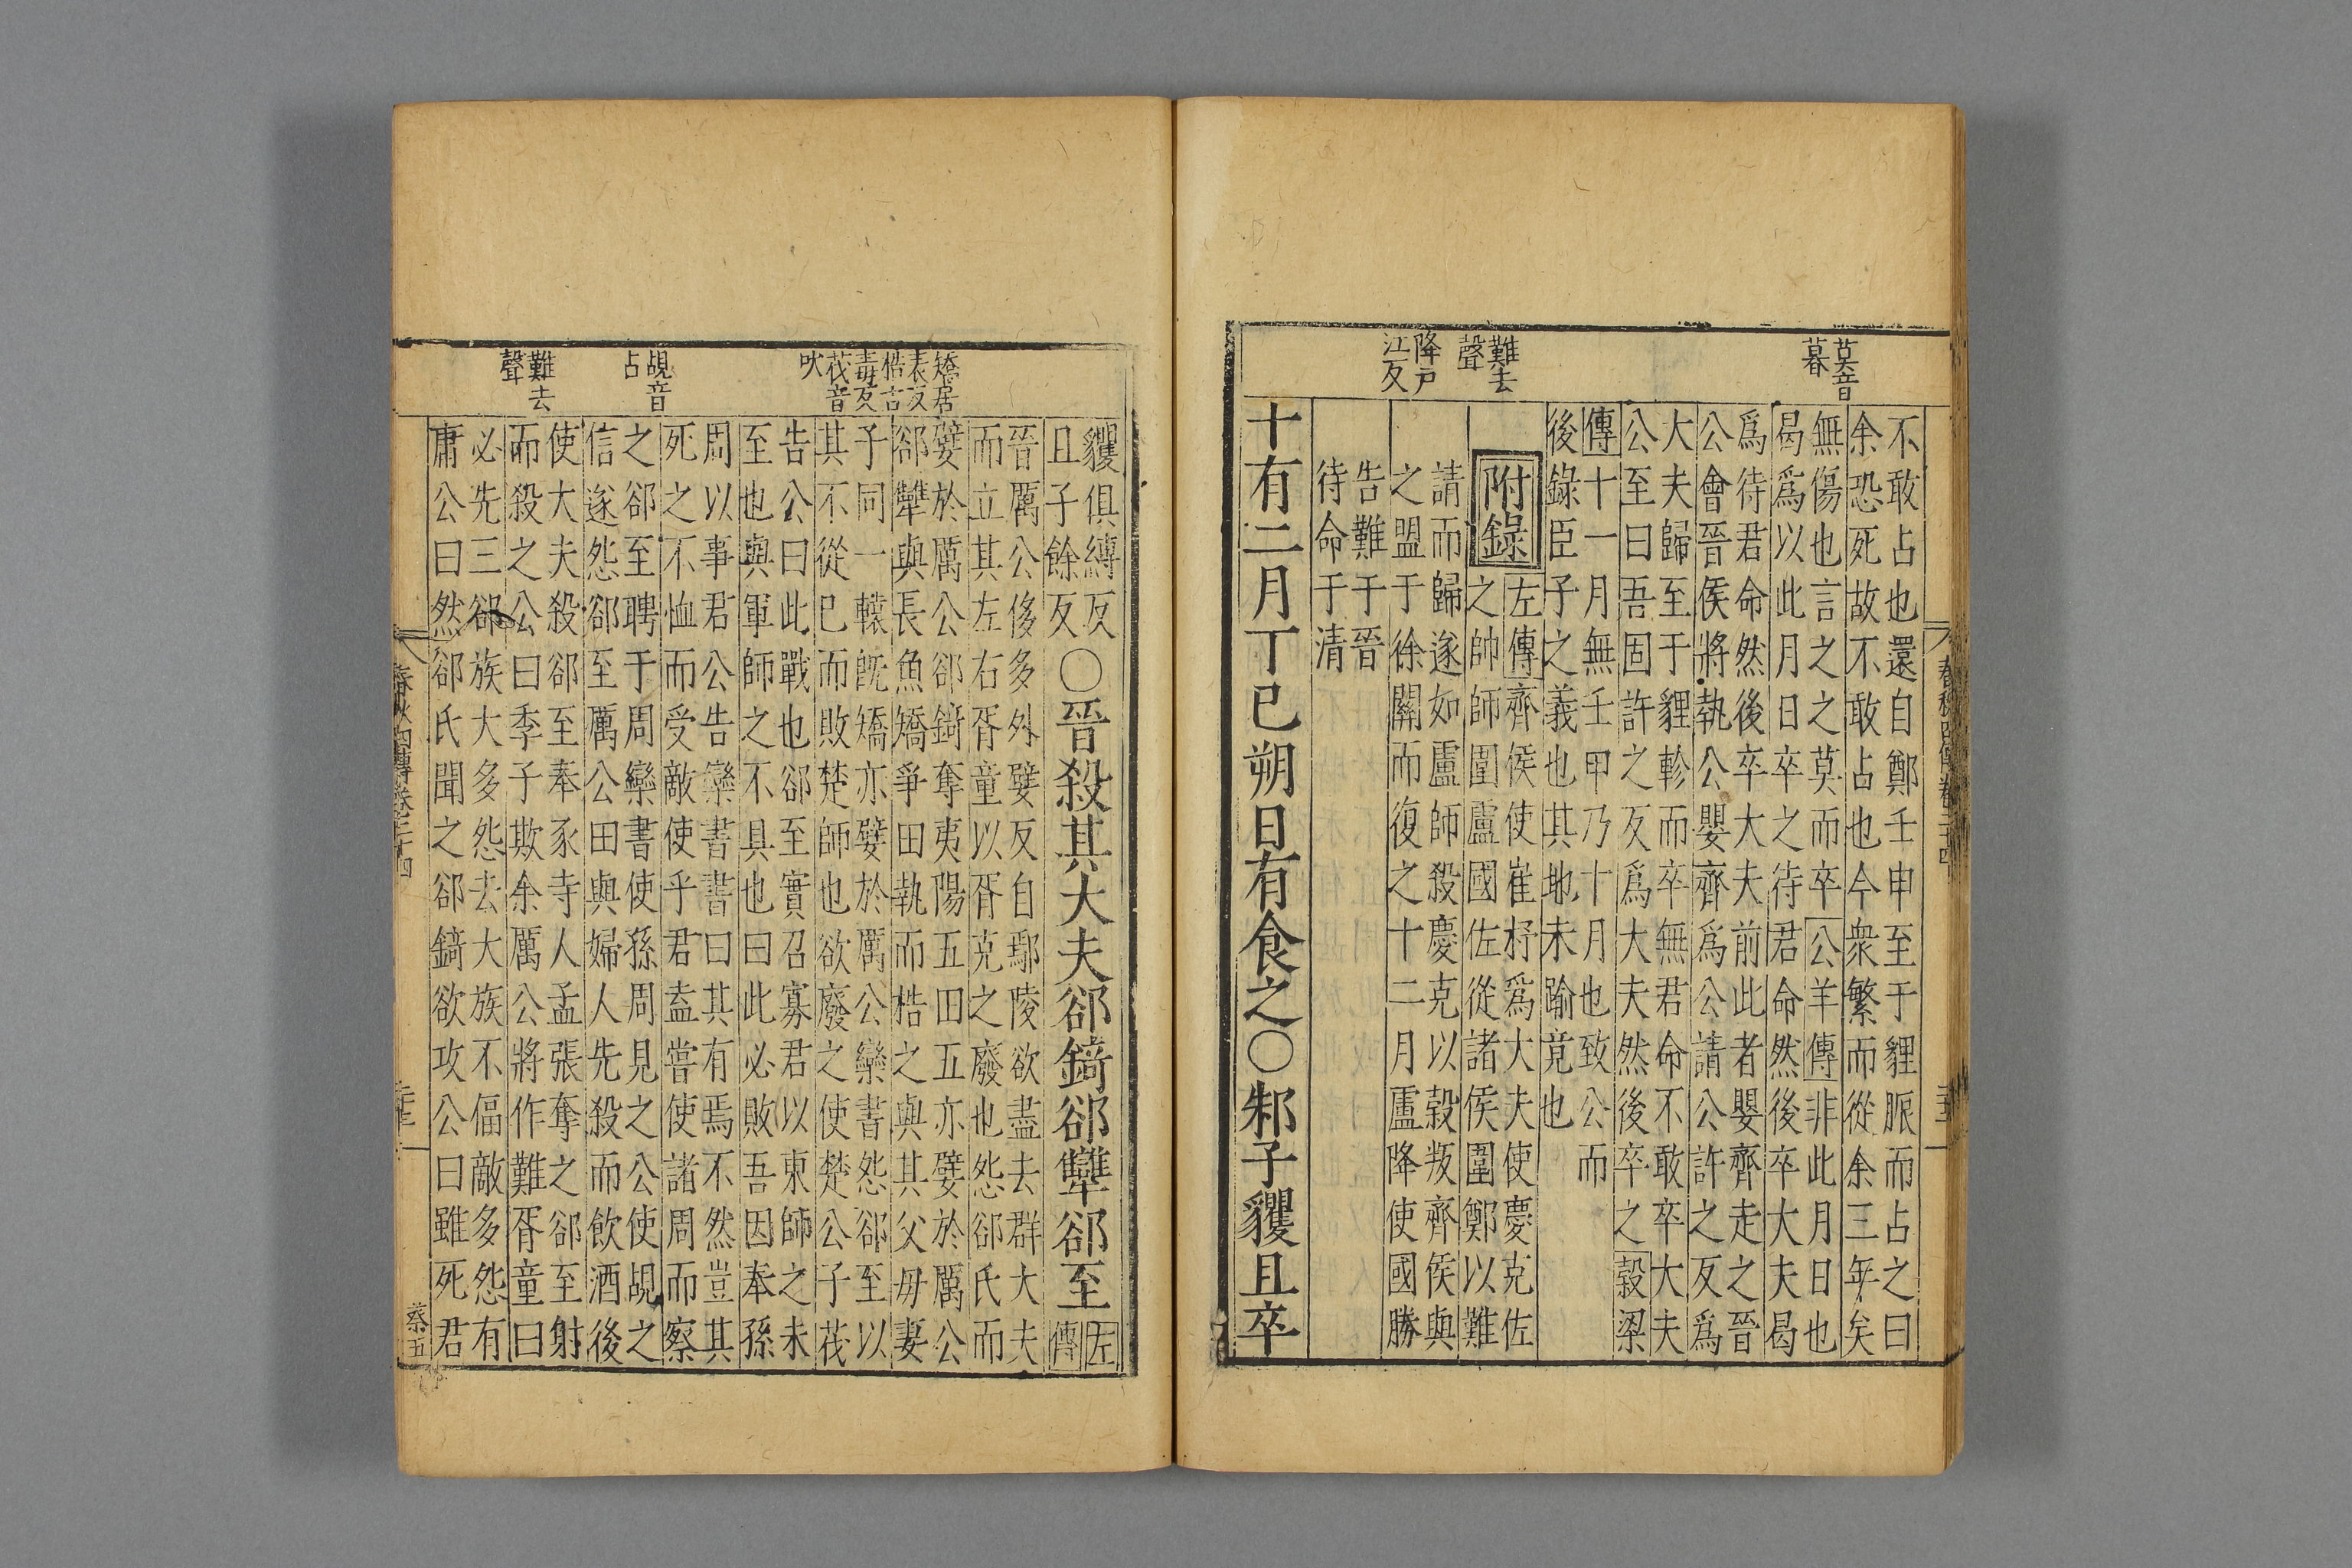 莫音
暮
難去
聲
降戶
江反
不敢占也還自鄭壬申至于貍脤而占之曰
余恐死故不敢占也今衆繁而從余三年矣
無傷也言之之莫而卒公羊傳非此月日也
曷爲以此月日卒之待君命然後卒大夫曷
爲待君命然後卒大夫前此者嬰齊走之晉
公會晉侯將執公嬰齊爲公請公許之反爲
大夫歸至于貍軫而卒無君命不敢卒大夫
公至曰吾固許之反爲大夫然後卒之穀梁
傳十一月無壬甲乃十月也致公而
後錄臣子之義也其地未踰竟也
附錄
左傳齊侯使崔杼爲大夫使慶克佐
之帥師圍盧國佐從諸侯圍鄭以難
請而歸遂如盧師殺慶克以穀叛齊侯與
之盟于徐關而復之十二月盧降使國勝
告難于晉
待命于清
十有二月丁巳朔日有食之〇邾子貜且卒
矯居
表反
梏古
毒反
茷音
吠
覘音
占
難去
聲
貜俱縛反
且子餘反
〇晉殺其大夫郤錡郤犨郤至
左
傳
晉厲公侈多外嬖反自鄢陵欲盡去群大夫
而立其左右胥童以胥克之廢也怨郤氏而
嬖於厲公郤錡奪夷陽五田五亦嬖於厲公
郤犨與長魚矯爭田執而梏之與其父母妻
子同一轅旣矯亦嬖於厲公欒書怨郤至以
其不從已而敗楚師也欲廢之使楚公子茷
告公曰此戰也郤至實召寡君以東師之未
至也與軍師之不具也曰此必敗吾因奉孫
周以事君公告欒書書曰其有焉不然豈其
死之不恤而受敵使乎君盍嘗使諸周而察
之郤至聘于周欒書使孫周見之公使覘之
信遂怨郤至厲公田與婦人先殺而飲酒後
使大夫殺郤至奉豕寺人孟張奪之郤至射
而殺之公曰季子欺余厲公將作難胥童曰
必先三郤族大多怨去大族不偪敵多怨有
庸公曰然郤氏聞之郤錡欲攻公曰雖死君
春秋四傳卷二十四
蔡五